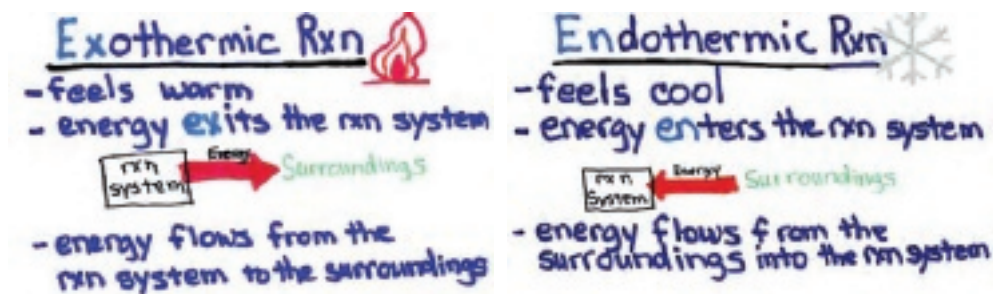 Exothermic Rxn
-feels warm
- energy exits the rxn system
rxn system
Energy
Surroundings
- energy flows from the
rxn system to the surroundings
Endothermic Rxn
-feels cool
- energy enters the rxn system
rxn System
Energy
Surroundings
- energy flows from the
surroundings into the rxn system